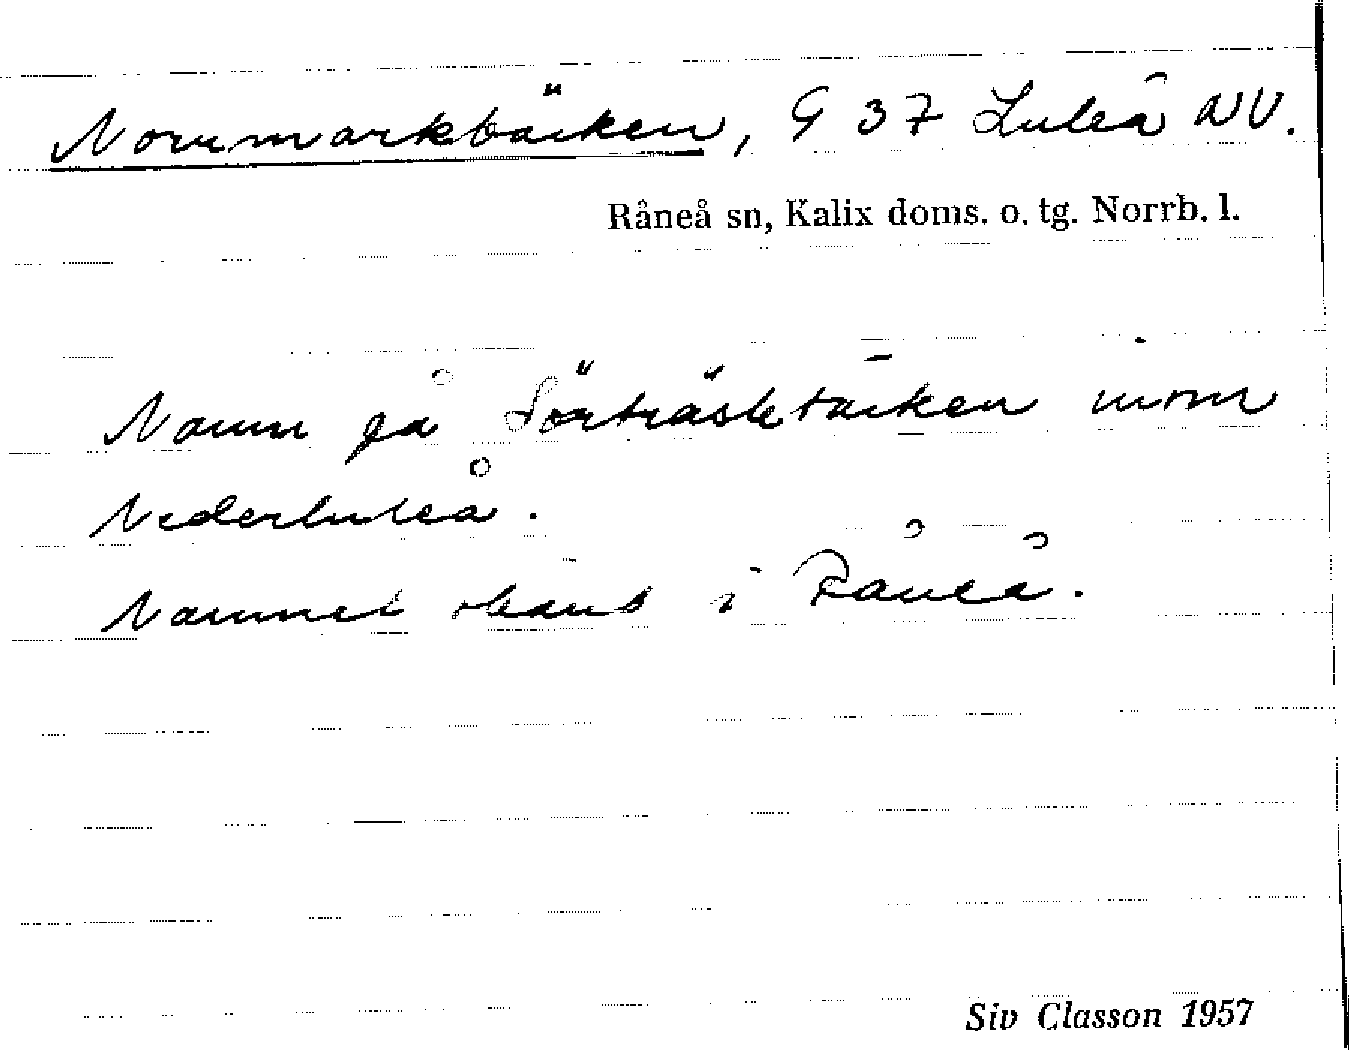 Norrmarkbäcken, G 37 Luleå NV.
Råneå sn, Kalix doms. o. tg. Norrb. l.
Namn på Sörträskbäcken inom
Nederluleå.
Namnet känt i Råneå.
Siv Classon 1957